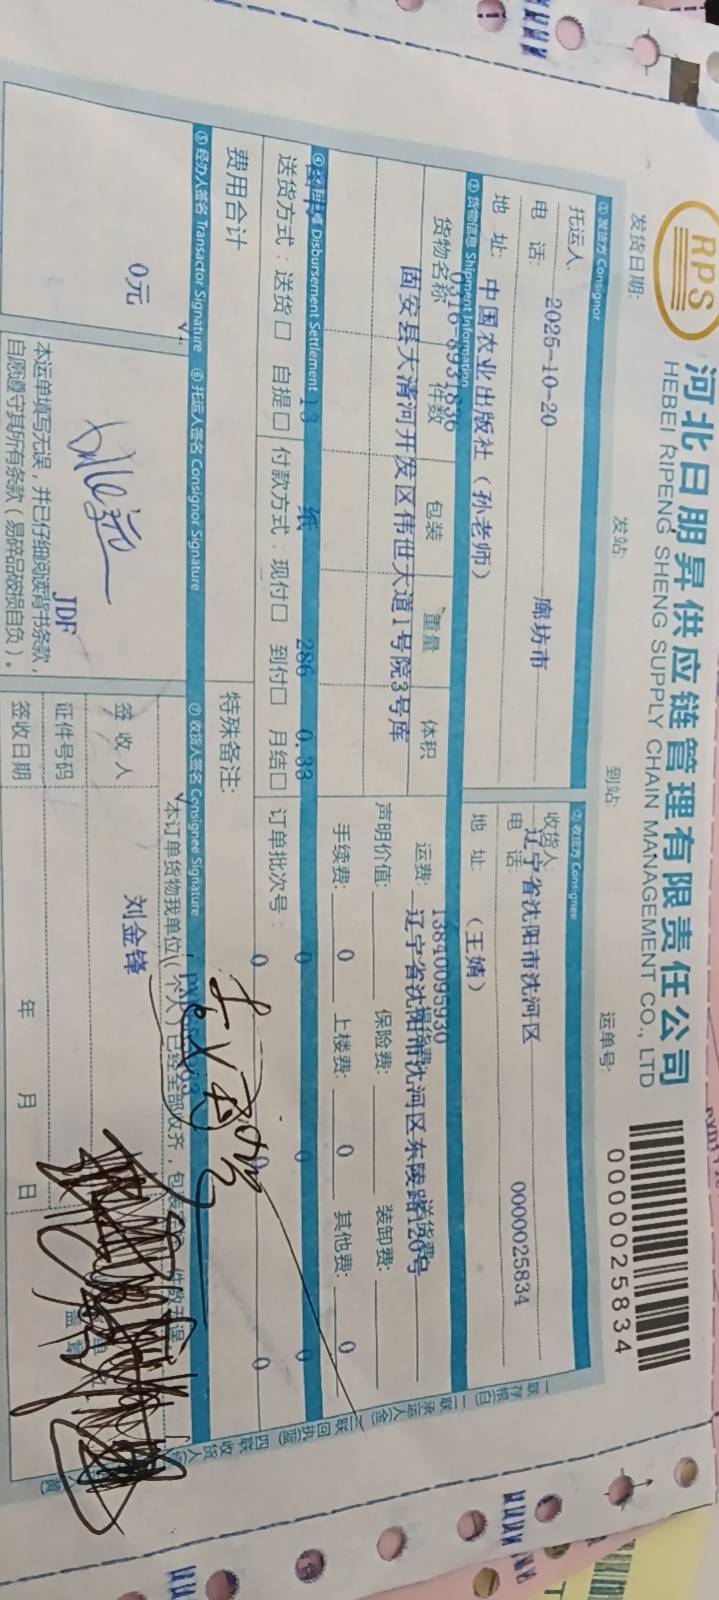 RPS
河北日朋昇供应链管理有限责任公司
HEBEI RIPENG SHENG SUPPLY CHAIN MANAGEMENT CO., LTD
0000025834
发货日期: 发站: 到站: 运单号:
① 发货方 Consignor ② 收货方 Consignee
2025-10-20 廊坊市 辽宁省沈阳市沈河区 0000025834
托运人: 收货人:
电 话: 电 话:
中国农业出版社(孙老师) (王婧)
地 址: 地 址:
③ 货物信息 Shipment Information
13840095930
货物名称 件数 包装 重量 体积 运费:
固安县大清河开发区伟世大道1号院3号库 辽宁省沈阳市沈河区东陵路120号
声明价值: 保险费: 装卸费:
手续费: 0 上楼费: 0 其他费: 0
Disbursement Settlement
13 纸 286 0.33 0 0 0
送货方式: 送货□ 自提□ 付款方式: 现付□ 到付□ 月结□ 订单批次号:
0 0 0
费用合计 特殊备注:
⑤ 经办人签名 Transactor Signature ⑥ 托运人签名 Consignor Signature ⑦ 收货人签名 Consignee Signature
本订单货物我单位(个人)已经全部收齐,
0元 刘金锋
签 收 人
本运单填写无误,并已仔细阅读背书条款,
自愿遵守其所有条款(易碎品破损自负)。
JDF
证件号码
签收日期 年 月 日
一联存根(白) 二联承运人(金) 三联回执(蓝) 四联收货人(红)